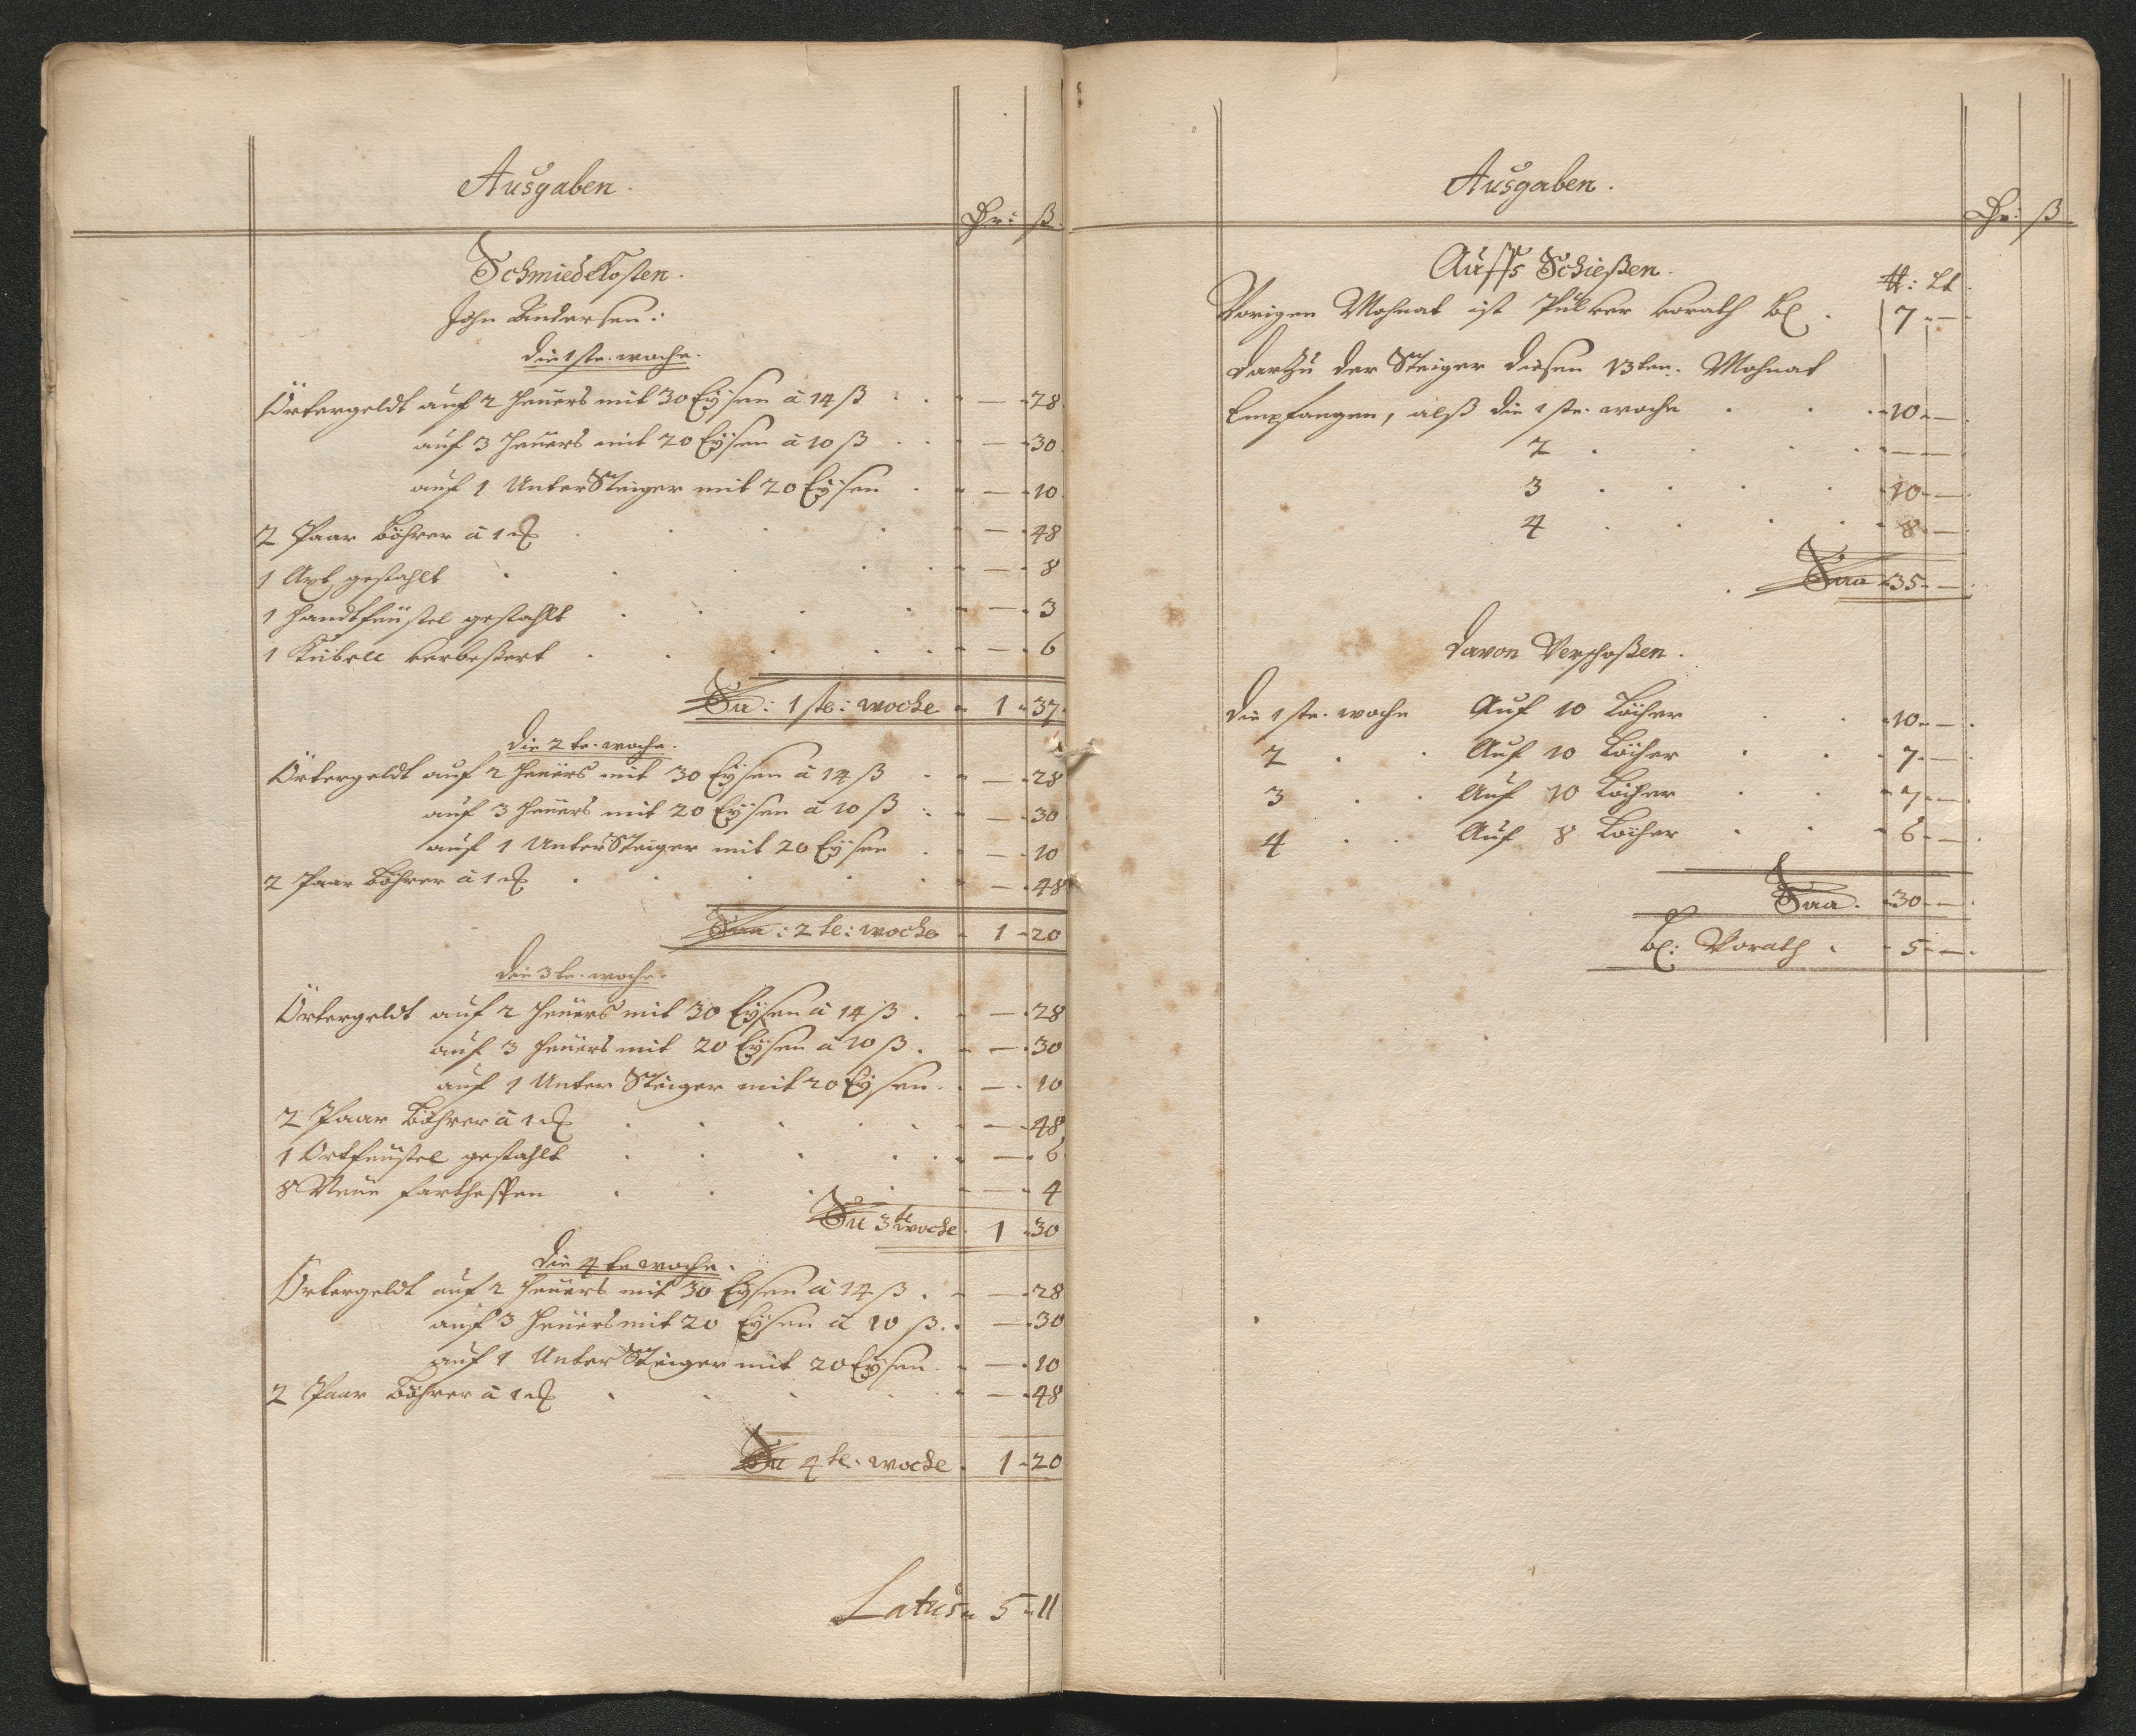 Ausgaben.
Thr: ß.
Schmiede Kosten.
John Andersen:
die 1ste. woche.
Örtergeldt auf 2 Heuers mit 30 Eÿsen à 14 ß . . — 28
auf 3 Heuers mit 20 Eÿsen à 10 ß . — 30
auf 1 UnterSteiger mit 20 Eÿsen . — 10
2 Paar Böhrer à 1 . . . — 48
1 Axt gestahlt . . . . — 8
1 Handtfeüstel gestahlt . . . — 3
1 Kübell verbeßert . . . . — 6
Su: 1ste: woche 1 37
die 2te. woche.
Örtergeldt auf 2 Heüers mit 30 Eÿsen à 14 ß . — 28
auf 3 Heüers mit 20 Eÿsen à 10 ß . — 30
auf 1 UnterSteiger mit 20 Eÿsen . — 10
2 Paar Böhrer à 1 . . . . — 48
Sua: 2te: woche 1 20
die 3te. woche.
Örtergeldt auf 2 Heüers mit 30 Eÿsen à 14 ß . — 28
auf 3 Heüers mit 20 Eÿsen à 10 ß . — 30
auf 1 Unter Steiger mit 20 Eÿsen . — 10
2 Paar Böhrer à 1 . . . . — 48
1 Ortfeüstel gestahlt . . . . — 6
8 Neüe . . . — 4
Su 3te woche 1 30
die 4te woche.
Örtergeldt auf 2 Heüers mit 30 Eÿsen à 14 ß . — 28
auf 3 Heüers mit 20 Eÿsen à 10 ß . — 30
auf 1 UnterSteiger mit 20 Eÿsen . — 10
2 Paar Böhrer à 1 . . . . — 48
Su 4te. woche 1 20
Latus 5 11
Ausgaben.
Thr: ß
Auffs Schießen.
℔: Lt
Vorigen Mohnat ist Pulver vorath bl . 7 —
darzu der Steiger diesen 13ten. Mohnat
Empfangen, alß die 1ste. woche . . . 10 —
2 . . . . — —
3 . . . . 10 —
4 . . . . 8 —
Sua 35 —
davon Verschoßen.
die 1ste. woche Auf 10 Löcher . . 10 —
2 . . Auf 10 Löcher . . 7 —
3 . . Auf 10 Löcher . . 7 —
4 . . Auf 8 Löcher . . 6 —
Sua. 30 —
bl: Vorath . 5 —